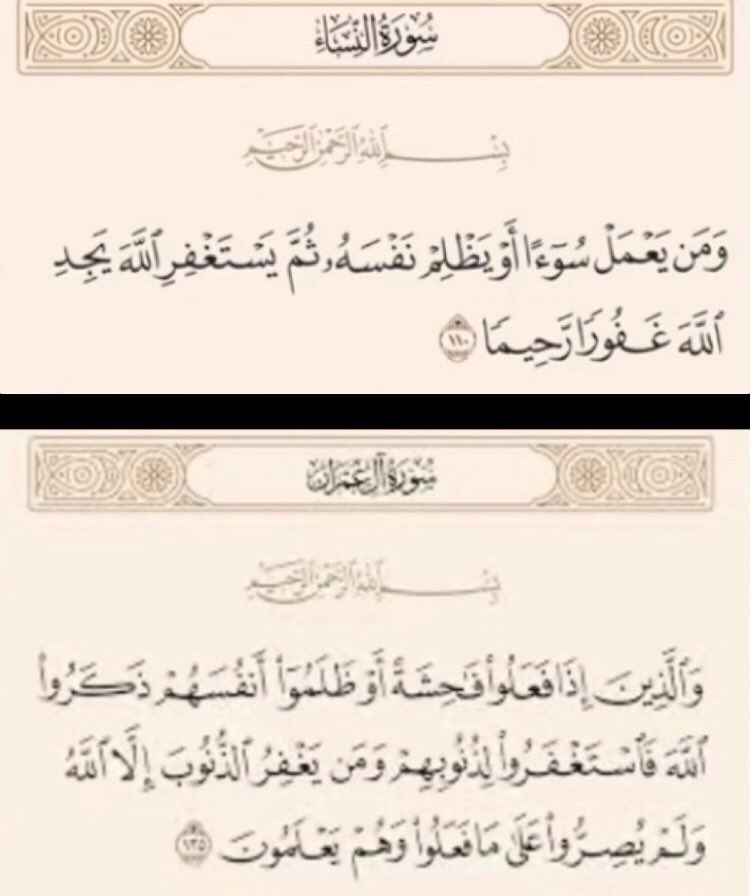 سُورَةُ النِّسَاءِ
بِسْمِ ٱللَّهِ ٱلرَّحْمَٰنِ ٱلرَّحِيمِ
وَمَن يَعْمَلْ سُوٓءًا أَوْ يَظْلِمْ نَفْسَهُۥ ثُمَّ يَسْتَغْفِرِ ٱللَّهَ يَجِدِ
ٱللَّهَ غَفُورًا رَّحِيمًا ١١٠
سُورَةُ آلِ عِمْرَانَ
بِسْمِ ٱللَّهِ ٱلرَّحْمَٰنِ ٱلرَّحِيمِ
وَٱلَّذِينَ إِذَا فَعَلُوا۟ فَٰحِشَةً أَوْ ظَلَمُوٓا۟ أَنفُسَهُمْ ذَكَرُوا۟
ٱللَّهَ فَٱسْتَغْفَرُوا۟ لِذُنُوبِهِمْ وَمَن يَغْفِرُ ٱلذُّنُوبَ إِلَّا ٱللَّهُ
وَلَمْ يُصِرُّوا۟ عَلَىٰ مَا فَعَلُوا۟ وَهُمْ يَعْلَمُونَ ١٣٥